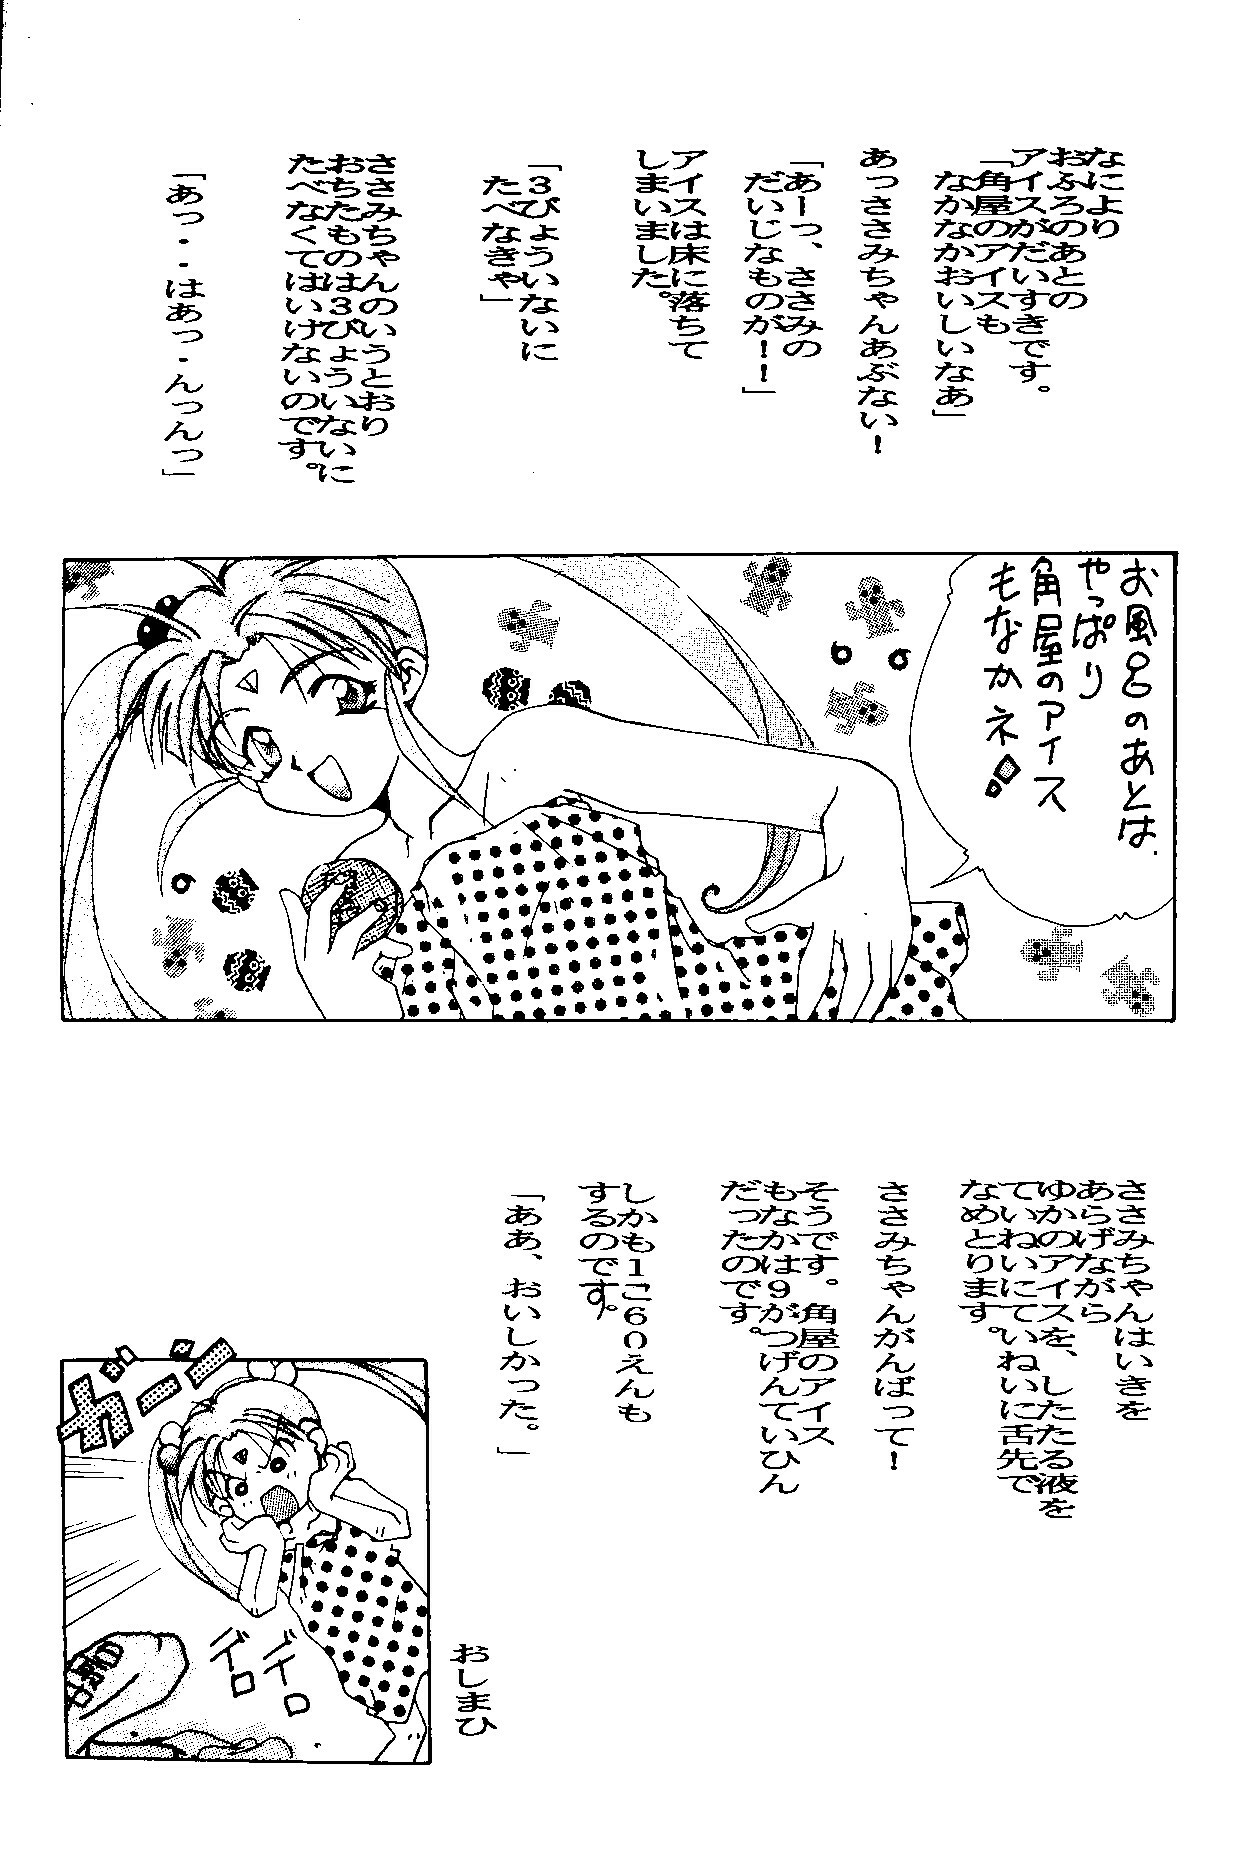 なにより
おふろのあとの
アイスがだいすきです。
「角屋のアイスも
なかなかおいしいなあ」
あっささみちゃんあぶない！
「あーっ、ささみの
だいじなものが！！」
アイスは床に落ちて
しまいました。
「３びょういないに
たべなきゃ」
ささみちゃんのいうとおり
おちたものは３びょういないに
たべなくてはいけないのです。
「あっ・・はあっ・んっんっ」
お風呂のあとは
やっぱり
角屋のアイス
もなかネ
ささみちゃんはいきを
あらげながら
ゆかのアイスを、したたる液を
ていねいにていねいに舌先で
なめとります。
ささみちゃんがんばって！
そうです。角屋のアイス
もなかは９がつげんていひん
だったのです。
しかも１こ６０えんも
するのです。
「ああ、おいしかった。」
ガーン
デロ
デロ
おしまひ